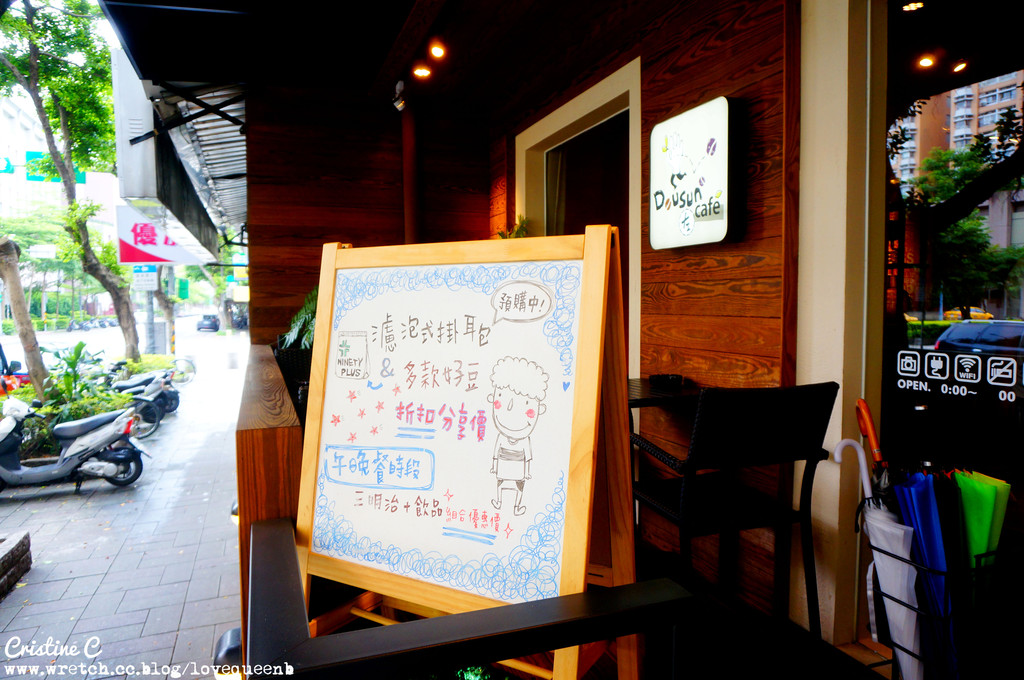 優
Dousun
左
café
預購中!
濾泡式掛耳包
NINETY
PLUS
&
多款好豆
折扣分享價
午晚餐時段
三明治+飲品
組合優惠價
WiFi
OPEN. 0:00~ 00
Cristine C
www.wretch.cc.blog/lovequeenb